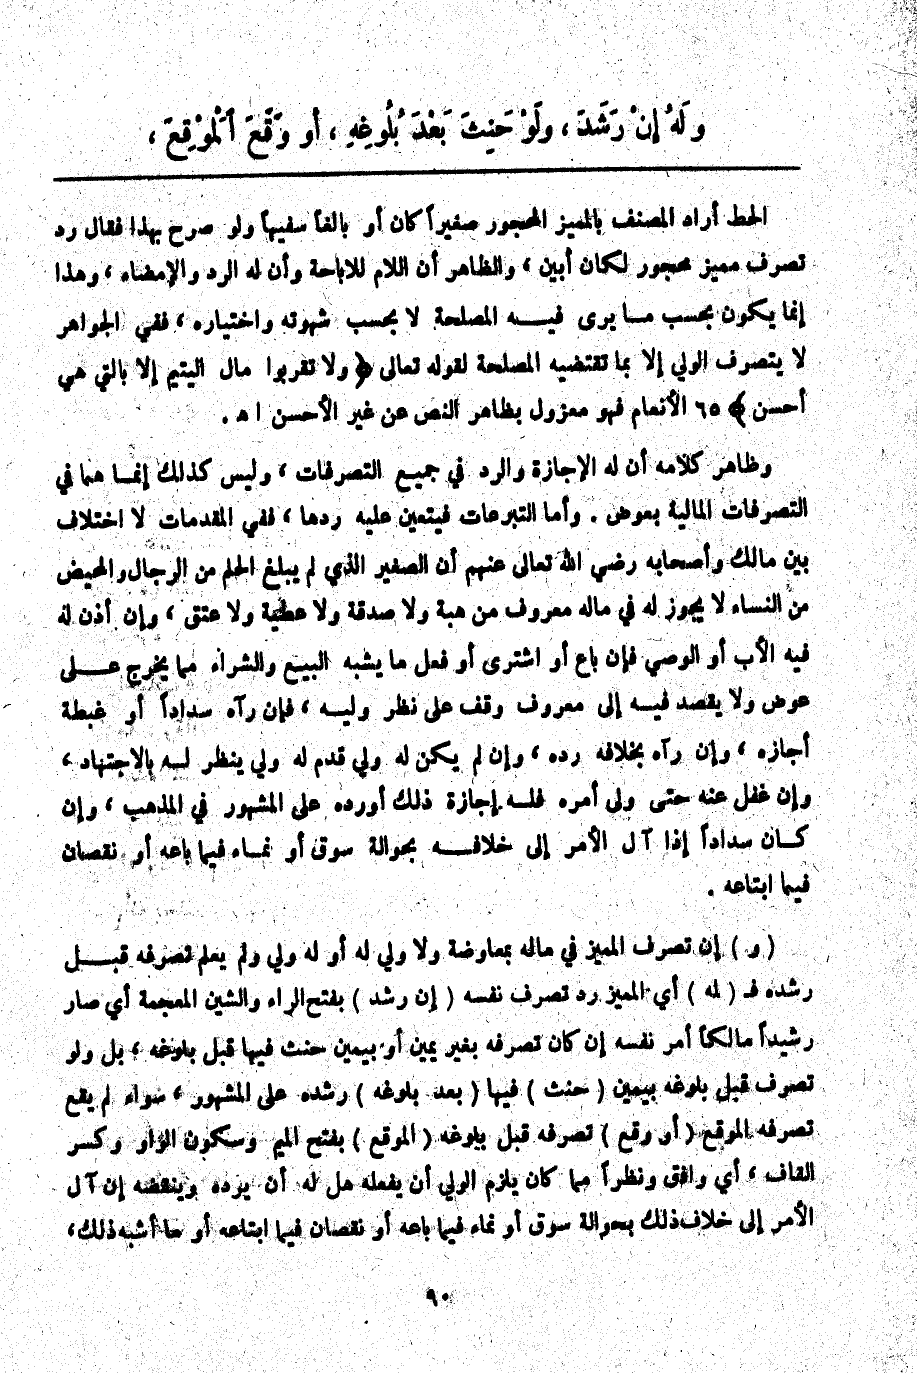 وَلَهُ إِنْ رَشَدَ ، وَلَوْ حَنِثَ بَعْدَ بُلُوغِهِ ، أو وَقَعَ اَلْمَوْقِعَ ،
الحط أراد المصنف بالمميز المحجور صغيراً كان أو بالغاً سفيهاً ولو صرح بهذا فقال رد
تصرف مميز محجور لكان أبين ، والظاهر أن اللام للاباحة وأن له الرد والإمضاء ، وهذا
إنما يكون بحسب مـا يرى فيـــه المصلحة لا بحسب شهوته واختياره ، ففي الجواهر
لا يتصرف الولي إلا بما تقتضيه المصلحة لقوله تعالى ﴿ ولا تقربوا مال اليتيم إلا بالتي هي
أحسن ﴾ ٦٥ الأنعام فهو معزول بظاهر النص عن غير الأحسن ا هـ .
وظاهر كلامه أن له الإجازة والرد في جميع التصرفات ، وليس كذلك إنمـا هما في
التصرفات المالية بعوض . وأما التبرعات فيتعين عليه ردها ، ففي المقدمات لا اختلاف
بين مالك وأصحابه رضي الله تعالى عنهم أن الصغير الذي لم يبلغ الحلم من الرجال والمحيض
من النساء لا يجوز له في ماله معروف من هبة ولا صدقة ولا عطية ولا عتق ، وإن أذن له
فيه الأب أو الوصي فإن باع أو اشترى أو فعل ما يشبه البيع والشراء مما يخرج عـــلى
عوض ولا يقصد فيـه إلى معروف وقف على نظر وليـه ، فإن رآه سداداً أو غبطة
أجازه ، وإن رآه بخلافه رده ، وإن لم يكن له ولي قدم له ولي ينظر لـه بالاجتهاد ،
وإن غفل عنه حتى ولى أمره فلـه إجازة ذلك أورده على المشهور في المذهب ، وإن
كـان سداداً إذا آل الأمر إلى خلافـــه بحوالة سوق أو نمـاء فيما باعه أو نقصان
فيما ابتاعه .
( و ) إن تصرف المميز في ماله بمعاوضة ولا ولي له أو له ولي ولم يعلم تصرفه قبـــل
رشده فـ ( له ) أي المميز رد تصرف نفسه ( إن رشد ) بفتح الراء والشين المعجمة أي صار
رشيداً مالكاً أمر نفسه إن كان تصرفه بغير يمين أو بيمين حنث فيها قبل بلوغه ، بل ولو
تصرف قبل بلوغه بيمين ( حنث ) فيها ( بعد بلوغه ) رشده على المشهور ، سواء لم يقع
تصرفه الموقع ( أو وقع ) تصرفه قبل بلوغه ( الموقع ) بفتح الميم وسكون الواو وكسر
القاف ، أي وافق ونظراً مما كان يلزم الولي أن يفعله هل له أن يرده وينقضه إن آل
الأمر إلى خلاف ذلك بحوالة سوق أو نماء فيما باعه أو نقصان فيما ابتاعه أو ما أشبه ذلك،
٩٠